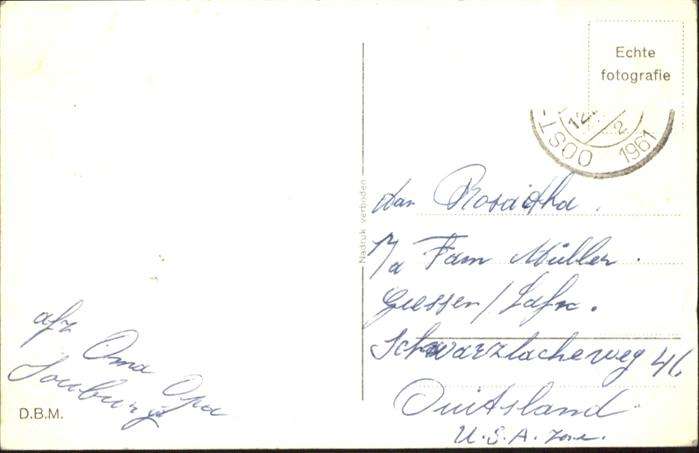 Echte
fotografie
OOST-
1961
Nadruk verboden
Aan Rosaitha.
p/a Fam Müller.
Giessen/Lahn.
Schwarzlacheweg 46
Duitsland
U.S.A. zone.
afz Oma Opa
Souburg
D.B.M.